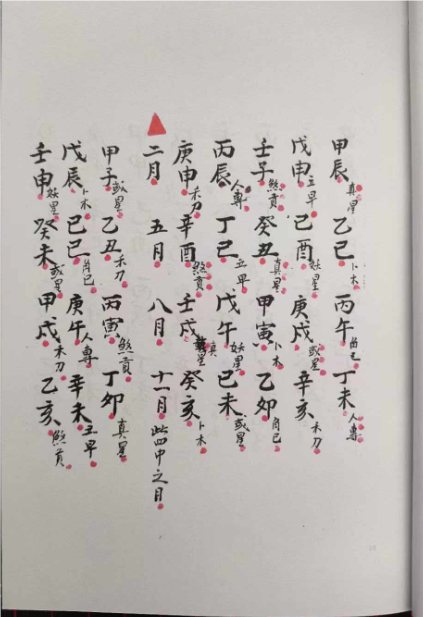 甲辰 真星 乙巳 卜木 丙午 角己 丁未 人專
戊申 立早 己酉 妖星 庚戌 或星 辛亥 禾刀
壬子 煞貢 癸丑 真星 甲寅 卜木 乙卯 角己
丙辰 人專 丁巳 立早 戊午 妖星 己未 或星
庚申 禾刀 辛酉 煞貢 壬戌 真星 癸亥 卜木
二月 五月 八月 十一月 此四中之月
甲子 或星 乙丑 禾刀 丙寅 煞貢 丁卯 真星
戊辰 卜木 己巳 角己 庚午 人專 辛未 立早
壬申 妖星 癸未 或星 甲戌 禾刀 乙亥 煞貢